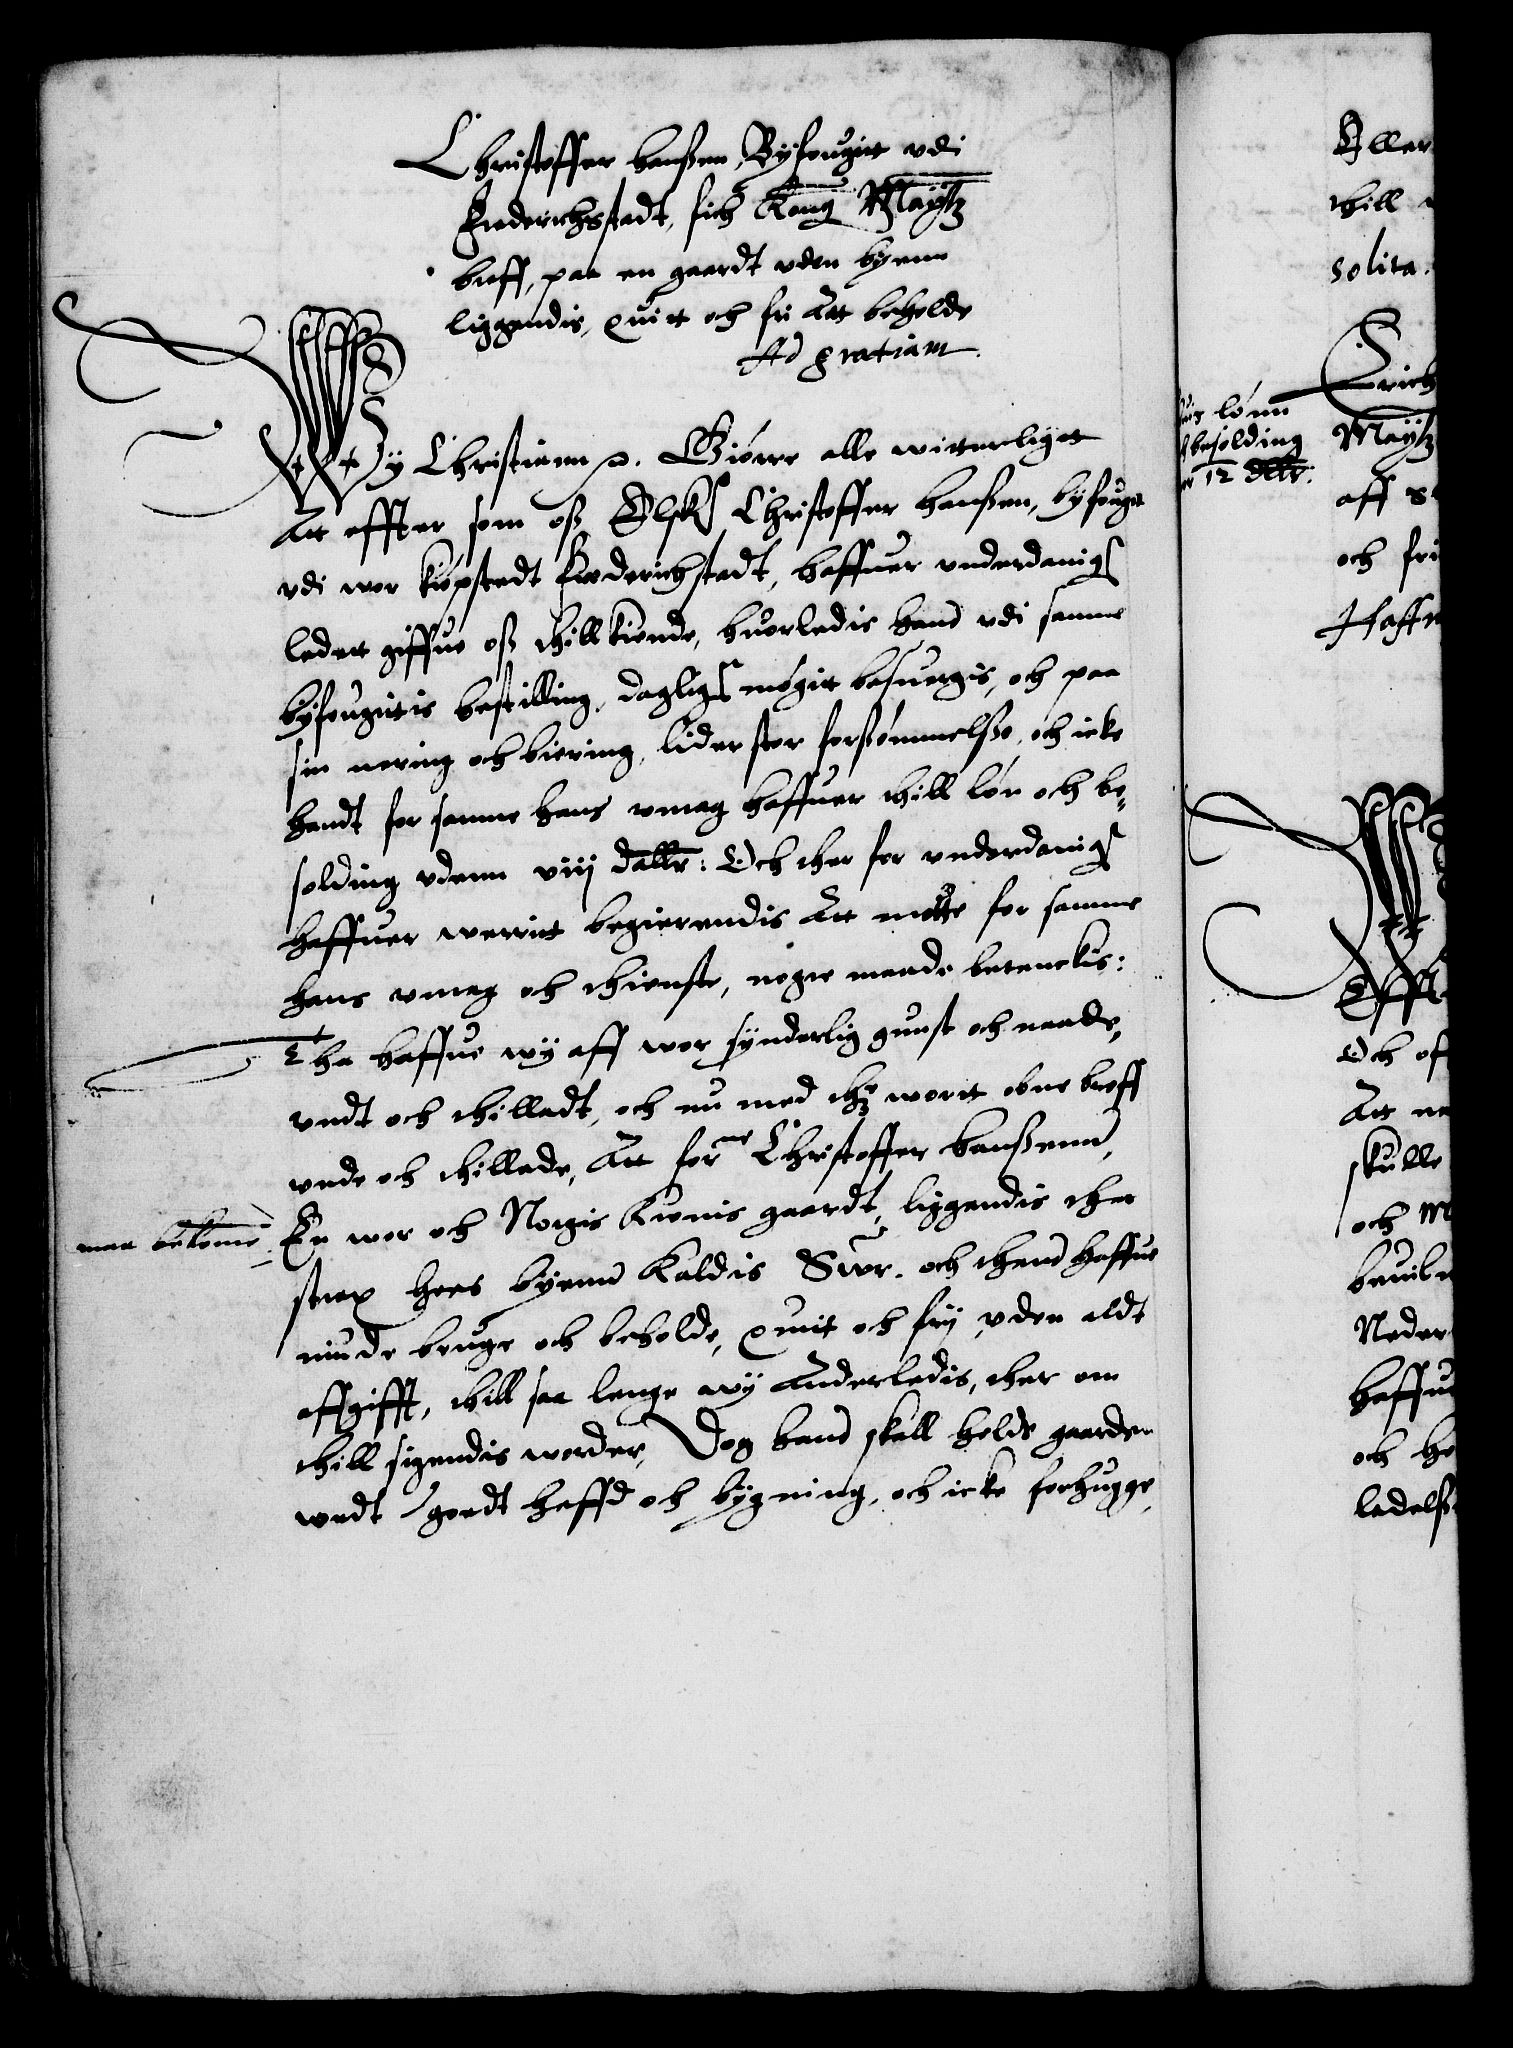 Christoffer hanßen, Byfougit vdi
Frederichstadt, fich Kong Maytz
breff, paa en gaardt vden byenn
liggendis, quit och fri Att beholde
Ad gratiam.
Wy Christiann etc. Giørre alle witterligt
Att effter som oß Elsk Christoffer hanßen, byfougit
vdi wor kiøpstedt Frederichstadt, haffuer vnderdanigst
ladett giffue oß thillkiende, huorledis hand vdi samme
byfougittis bestilling, dagligst møgitt besuergis, och paa
sin nering och biering, lider stor forßømmelße, och icke
handt for samme hans vmag haffuer thill løn och be,
solding vdenn viij dallr: Och ther for vnderdanigst
haffuer werrit begierendis Att motte for samme
hans vmag och thieniste, nogre maade betenckis:
Tha haffue wy aff wor synderlig gunst och naade,
vndt och thilladt, och nu med thz wortt obne breff
vnde och thillade, Att forne Christoffer hanßenn,
maa bekome
En wor och Norgis Kronis gaardt, liggendis ther
strax hoes byenn Kaldis Swr. och thend haffue
niude bruge och beholde, quit och frij vden aldt
affgifft, thill saa lenge wy Anderledis, ther om
thill sigendis worder, Dog hand skall holde gaarden
wedt goedt heffd och bygning, och icke forhugge,
løn
besolding
12 dallr:
Eller
thill
solita.
Erich
Maytz
aff
och fri
Haffn
Effter
Och
Att
skulle
och
Neder
haffue
och
ledelß